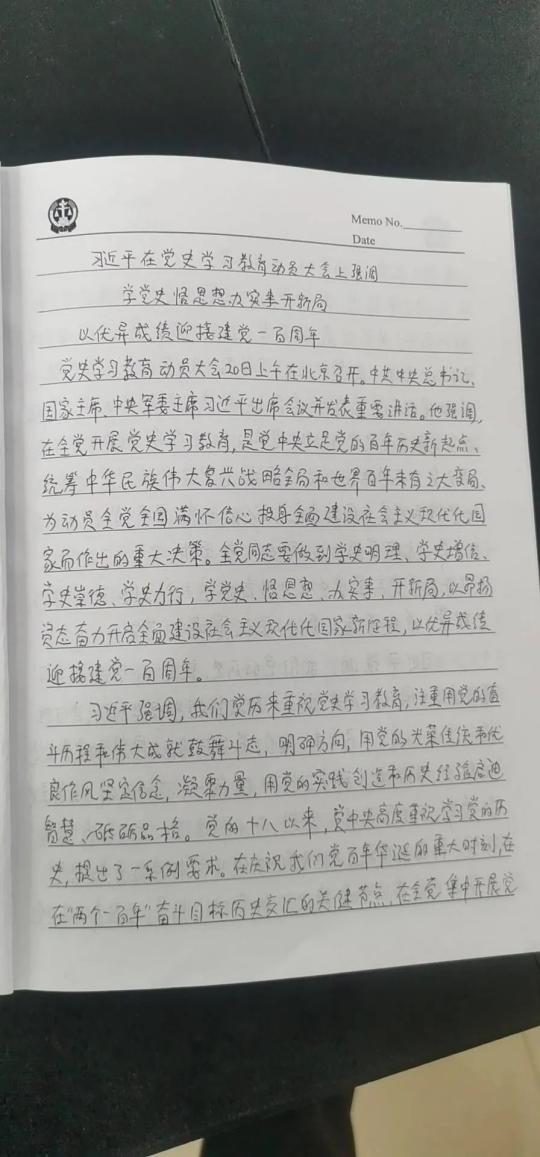 Memo No.
Date
习近平在党史学习教育动员大会上强调
学党史悟思想办实事开新局
以优异成绩迎接建党一百周年
党史学习教育动员大会20日上午在北京召开。中共中央总书记、
国家主席、中央军委主席习近平出席会议并发表重要讲话。他强调,
在全党开展党史学习教育,是党中央立足党的百年历史新起点、
统筹中华民族伟大复兴战略全局和世界百年未有之大变局、
为动员全党全国满怀信心投身全面建设社会主义现代化国
家而作出的重大决策。全党同志要做到学史明理、学史增信、
学史崇德、学史力行,学党史、悟思想、办实事、开新局,以昂扬
姿态奋力开启全面建设社会主义现代化国家新征程,以优异成绩
迎接建党一百周年。
习近平强调,我们党历来重视党史学习教育,注重用党的奋
斗历程和伟大成就鼓舞斗志,明确方向,用党的光荣传统和优
良作风坚定信念,凝聚力量,用党的实践创造和历史经验启迪
智慧、砥砺品格。党的十八以来,党中央高度重视学习党的历
史,提出了一系例要求。在庆祝我们党百年华诞的重大时刻,在
在"两个一百年"奋斗目标历史交汇的关健节点,在全党集中开展党